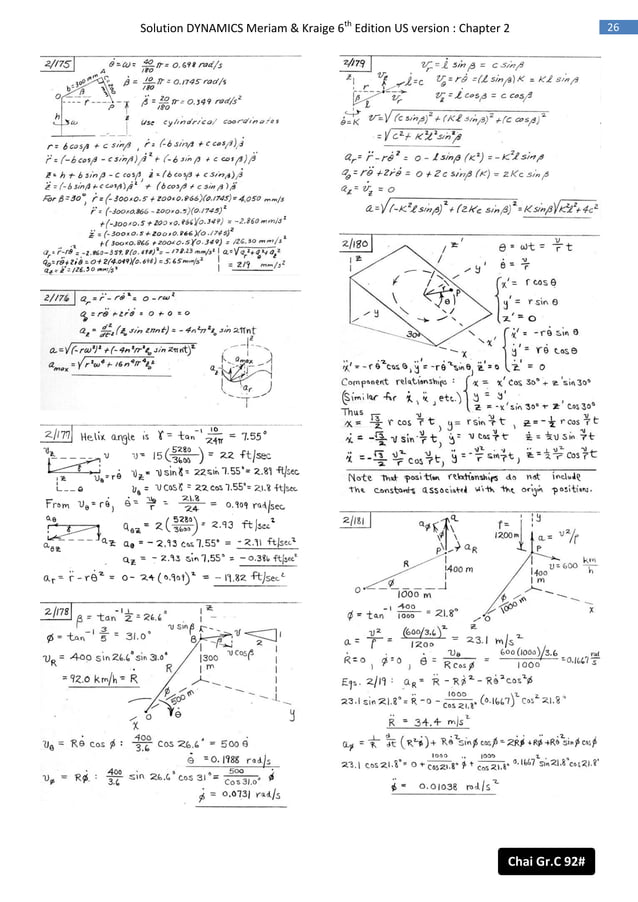 Solution DYNAMICS Meriam & Kraige 6th Edition US version : Chapter 2
26
2/175
θ̇ = ω = 40/180 π = 0.698 rad/s
β̇ = 10/180 π = 0.1745 rad/s
β̈ = 20/180 π = 0.349 rad/s²
Use cylindrical coordinates
r = b cosβ + c sinβ, ṙ = (-b sinβ + c cosβ)β̇
r̈ = (-b cosβ - c sinβ)β̇² + (-b sinβ + c cosβ)β̈
z = h + b sinβ - c cosβ, ż = (b cosβ + c sinβ)β̇
z̈ = (-b sinβ + c cosβ)β̇² + (b cosβ + c sinβ)β̈
2/176
a_r = r̈ - rθ̇² = 0 - rω²
a_θ = rθ̈ + 2ṙθ̇ = 0 + 0 = 0
a_z = d²/dt² (z₀ sin 2πnt) = -4n²π²z₀ sin 2πnt
a = √((-rω²)² + (-4n²π²z₀ sin 2πnt)²)
a_max = √(r²ω⁴ + 16n⁴π⁴z₀²)
a_max
a_z
a_r
2/177 Helix angle is γ = tan⁻¹ 10/24π = 7.55°
v = 15(5280/3600) = 22 ft/sec
v_z = v sin γ = 22 sin 7.55° = 2.89 ft/sec
v_θ = v cos γ = 22 cos 7.55° = 21.8 ft/sec
From v_θ = rθ̇, θ̇ = v_θ/r = 21.8/24 = 0.909 rad/sec
a_θz = 2(5280/3600) = 2.93 ft/sec²
a_θ = -2.93 cos 7.55° = -2.91 ft/sec²
a_z = -2.93 sin 7.55° = -0.386 ft/sec²
a_r = r̈ - rθ̇² = 0 - 24(0.909)² = -19.82 ft/sec²
2/178
β = tan⁻¹ 1/2 = 26.6°
φ = tan⁻¹ 3/5 = 31.0°
v_R = 400 sin 26.6° sin 31.0°
= 92.0 km/h = Ṙ
v sin β
v cos β
300 m
500 m
v_θ = Rθ̇ cos φ : 400/3.6 cos 26.6° = 500 θ̇
θ̇ = 0.1988 rad/s
v_φ = Rφ̇ : 400/3.6 sin 26.6° cos 31° = 500/cos 31.0° φ̇
φ̇ = 0.0731 rad/s
2/179
v_r = l̇ sin β = c sin β
v_θ = rθ̇ = (l sin β)K = Kl sin β
v_z = l̇ cos β = c cos β
l̇ = c
θ̇ = K
v = √((c sin β)² + (Kl sin β)² + (c cos β)²)
= √(c² + K²l² sin²β)
a_r = r̈ - rθ̇² = 0 - l sin β (K²) = -K²l sin β
a_θ = rθ̈ + 2ṙθ̇ = 0 + 2c sin β (K) = 2Kc sin β
a_z = v̇_z = 0
a = √((-K²l sin β)² + (2Kc sin β)²) = K sin β √(K²l² + 4c²)
2/180
θ = ωt = v/r t
θ̇ = v/r
x' = r cos θ
y' = r sin θ
z' = 0
ẋ' = -rθ̇ sin θ
ẏ' = rθ̇ cos θ
ż' = 0
30°
ẍ' = -rθ̇² cos θ, ÿ' = -rθ̇² sin θ, z̈' = 0
Component relationships :
(Similar for ẋ, ẍ, etc.)
x = x' cos 30° + z' sin 30°
y = y'
z = -x' sin 30° + z' cos 30°
Thus
x = √3/2 r cos v/r t, y = r sin v/r t, z = -1/2 r cos v/r t
ẋ = -√3/2 v sin v/r t, ẏ = v cos v/r t, ż = 1/2 v sin v/r t
ẍ = -√3/2 v²/r cos v/r t, ÿ = -v²/r sin v/r t, z̈ = 1/2 v²/r cos v/r t
Note that position relationships do not include
the constants associated with the origin positions.
2/181
ρ = 1200 m
a = v²/ρ
v = 600 km/h
400 m
1000 m
φ = tan⁻¹ 400/1000 = 21.8°
a = v²/ρ = (600/3.6)²/1200 = 23.1 m/s²
Ṙ = 0, φ̇ = 0, θ̇ = v_θ/R cos φ = 600(1000)/3.6 / 1000 = 0.1667 rad/s
Eqs. 2/19 : a_R = R̈ - Rφ̇² - Rθ̇² cos²φ
23.1 sin 21.8° = R̈ - 0 - 1000/cos 21.8° (0.1667)² cos² 21.8°
R̈ = 34.4 m/s²
a_φ = 1/R d/dt (R²φ̇) + Rθ̇² sin φ cos φ = 2Ṙφ̇ + Rφ̈ + Rθ̇² sin φ cos φ
23.1 cos 21.8° = 0 + 1000/cos 21.8° φ̈ + 1000/cos 21.8° 0.1667² sin 21.8° cos 21.8°
φ̈ = 0.01038 rad/s²
Chai Gr.C 92#